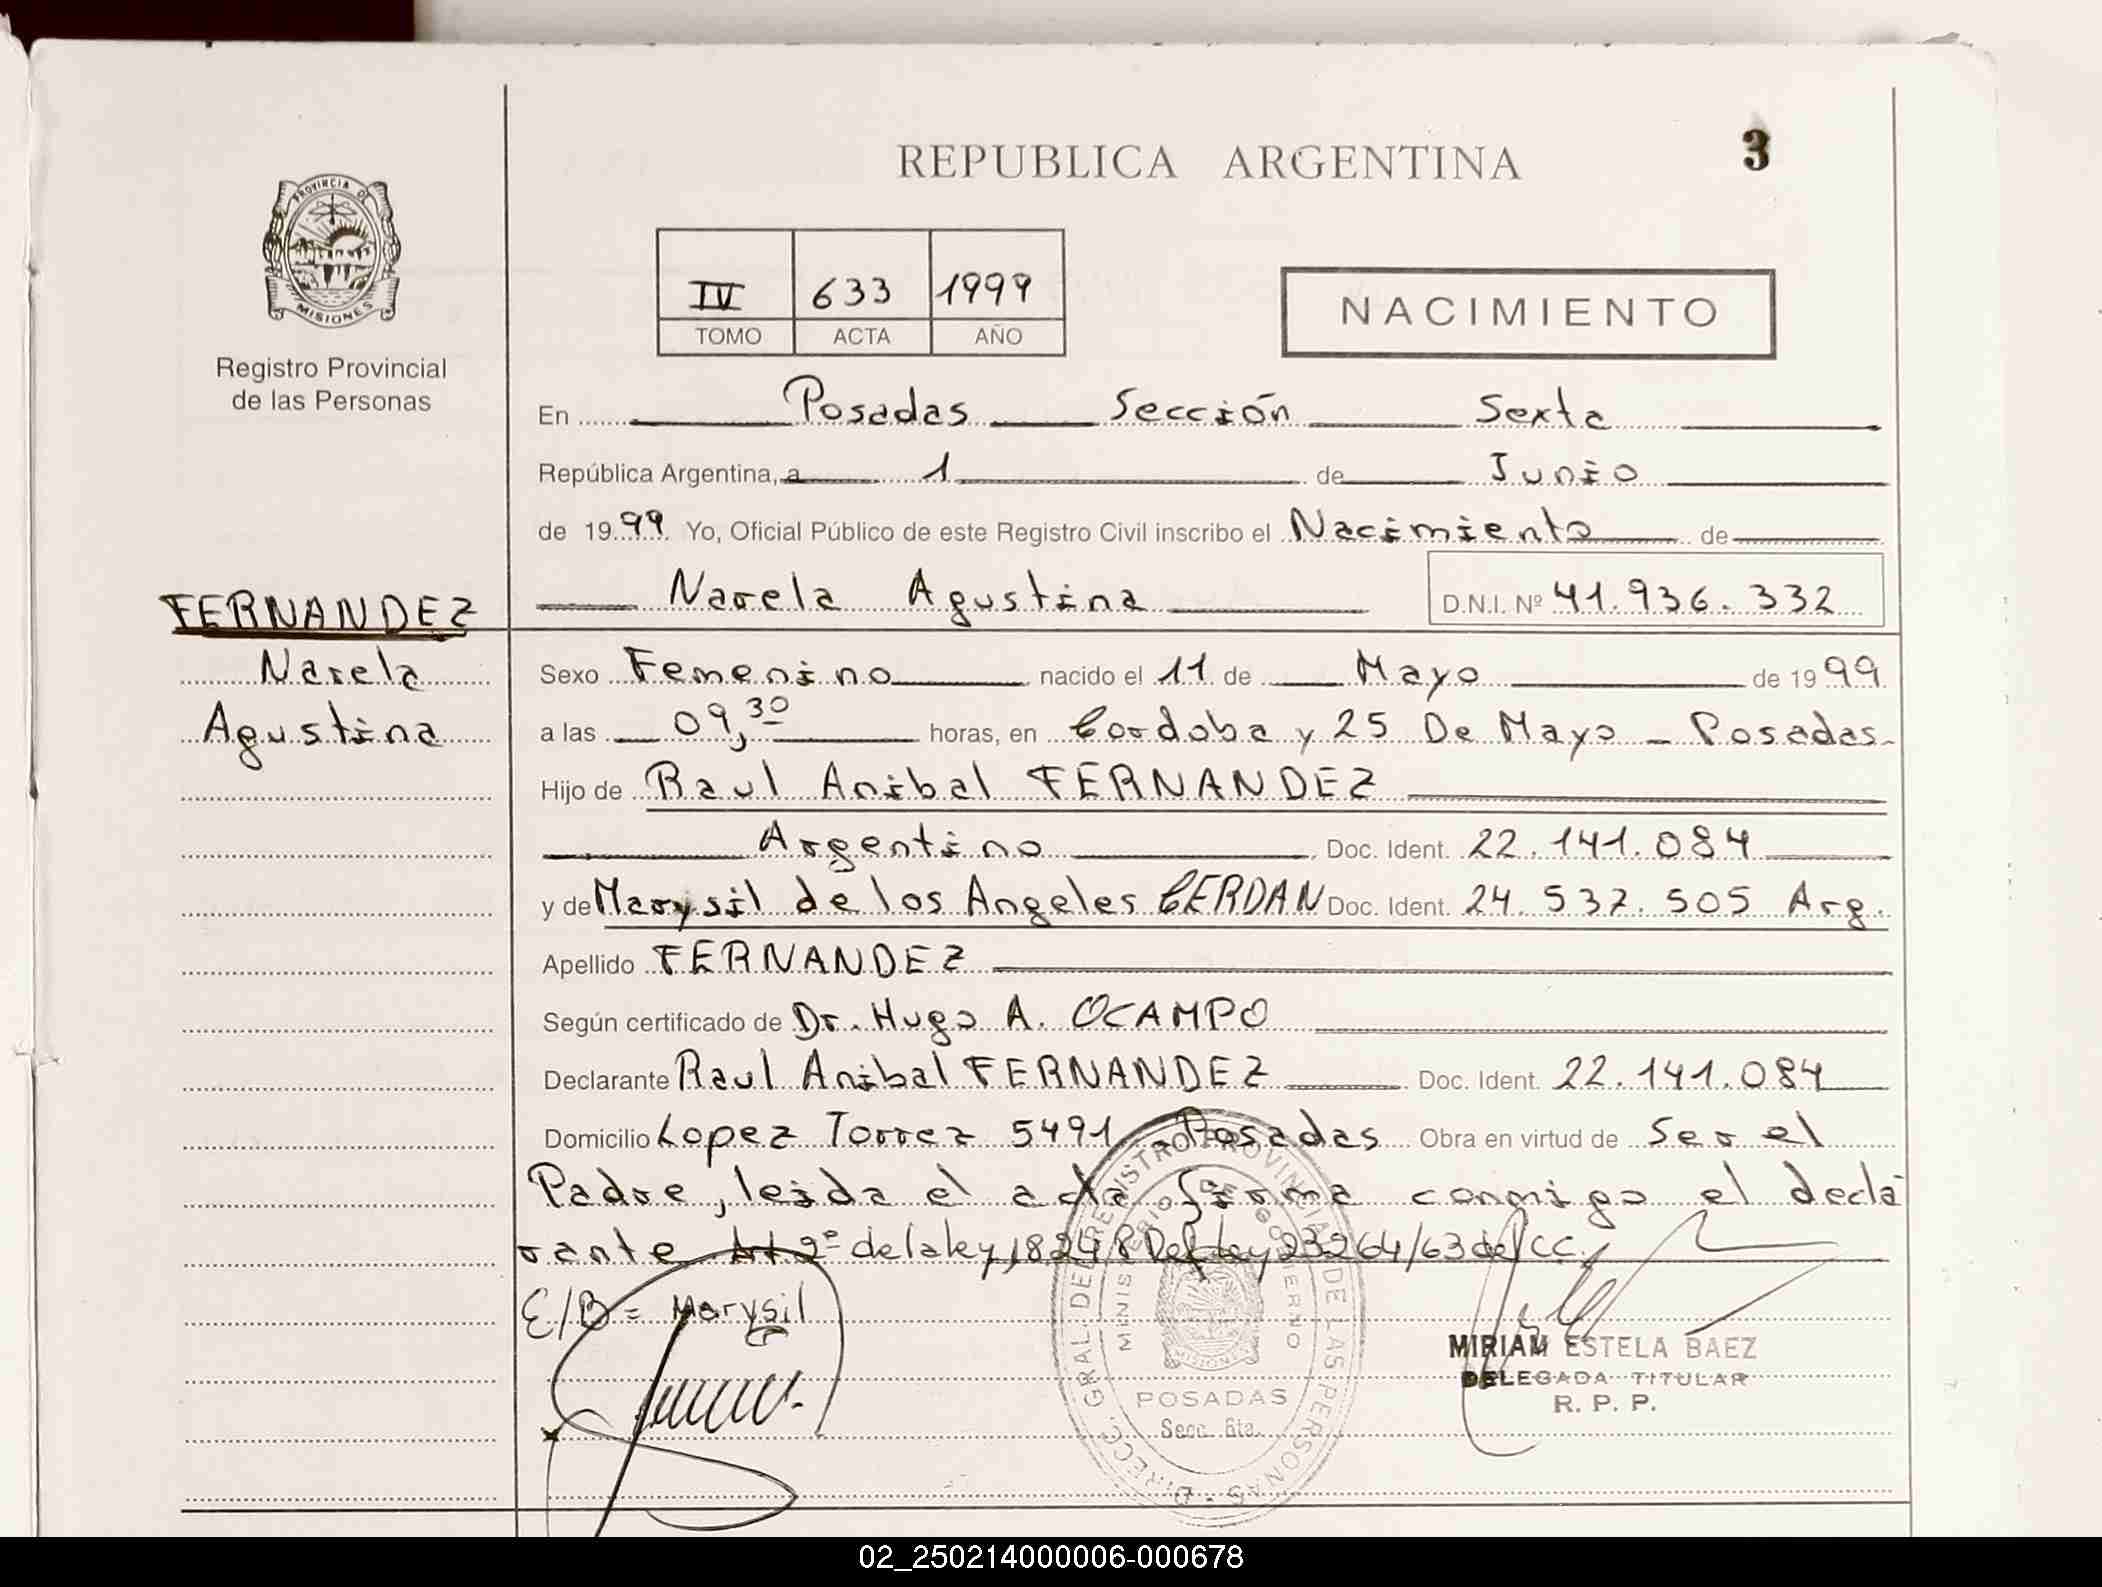 REPUBLICA ARGENTINA
3
PROVINCIA DE
MISIONES
Registro Provincial
de las Personas
IV 633 1999
TOMO ACTA AÑO
NACIMIENTO
En Posadas Sección Sexta
República Argentina, a 1 de Junio
de 1999 Yo, Oficial Público de este Registro Civil inscribo el Nacimiento de
Narela Agustina D.N.I. Nº 41.936.332
FERNANDEZ
Narela
Agustina
Sexo Femenino nacido el 11 de Mayo de 1999
a las 09,30 horas, en Cordoba y 25 De Mayo - Posadas-
Hijo de Raul Anibal FERNANDEZ
Argentino Doc. Ident. 22.141.084
y de Marysil de los Angeles CERDAN Doc. Ident. 24.537.505 Arg.
Apellido FERNANDEZ
Según certificado de Dr. Hugo A. OCAMPO
Declarante Raul Anibal FERNANDEZ Doc. Ident. 22.141.084
Domicilio Lopez Torrez 5491 - Posadas Obra en virtud de Ser el
Padre, leida el acta firma conmigo el decla
rante Art 2º de la ley 18248 Del ley 23264/63 del CC.
E/B = Marysil
DIRECC. GRAL. DEL REGISTRO PROVINCIAL DE LAS PERSONAS
MINISTERIO DE GOBIERNO
MISIONES
POSADAS
Secc. 6ta.
MIRIAM ESTELA BAEZ
DELEGADA TITULAR
R. P. P.
02_250214000006-000678